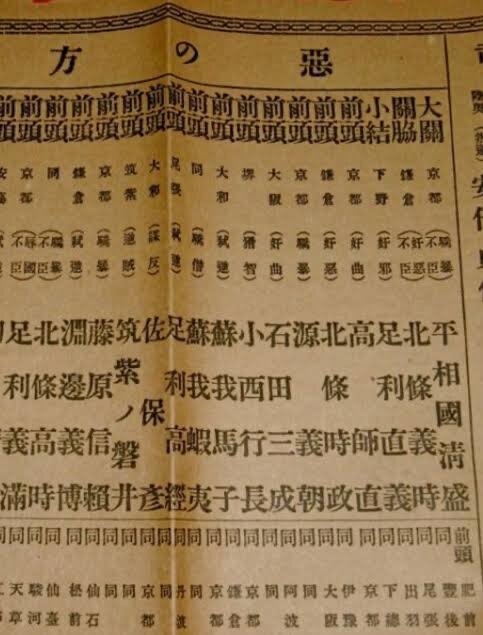 惡の方
大關 京都 (驕暴不臣) 平相國清盛
關脇 鎌倉 (奸惡不臣) 北條義時
小結 下野 (奸邪) 足利直義
前頭 京都 (奸曲) 高師直
前頭 鎌倉 (奸惡) 北條時政
前頭 京都 (驕暴) 源義朝
前頭 大阪 (奸曲) 石田三成
前頭 堺 (猾智) 小西行長
前頭 大和 (弑逆) 蘇我馬子
前頭 同 (驕僭) 蘇我蝦夷
前頭 尾張 (弑逆) 足利高經
前頭 大和 (謀反) 佐保彥
前頭 筑紫 (逆賊) 筑紫ノ磐井
前頭 京都 (驕暴) 藤原信賴
前頭 鎌倉 (弑逆) 淵邊義博
前頭 同 (驕暴辱國) 北條高時
前頭 京都 (不臣) 足利義滿
前頭 肥前
同 豐後
同 尾張
同 出羽
同 下總
同 京都
同 伊豫
同 大阪
同 同
同 阿波
同 同
同 京都
同 鎌倉
同 京都
同 同
同 丹波
同 同
同 京都
同 同
同 同
同 松前
同 仙臺
同 駿河
同 天草